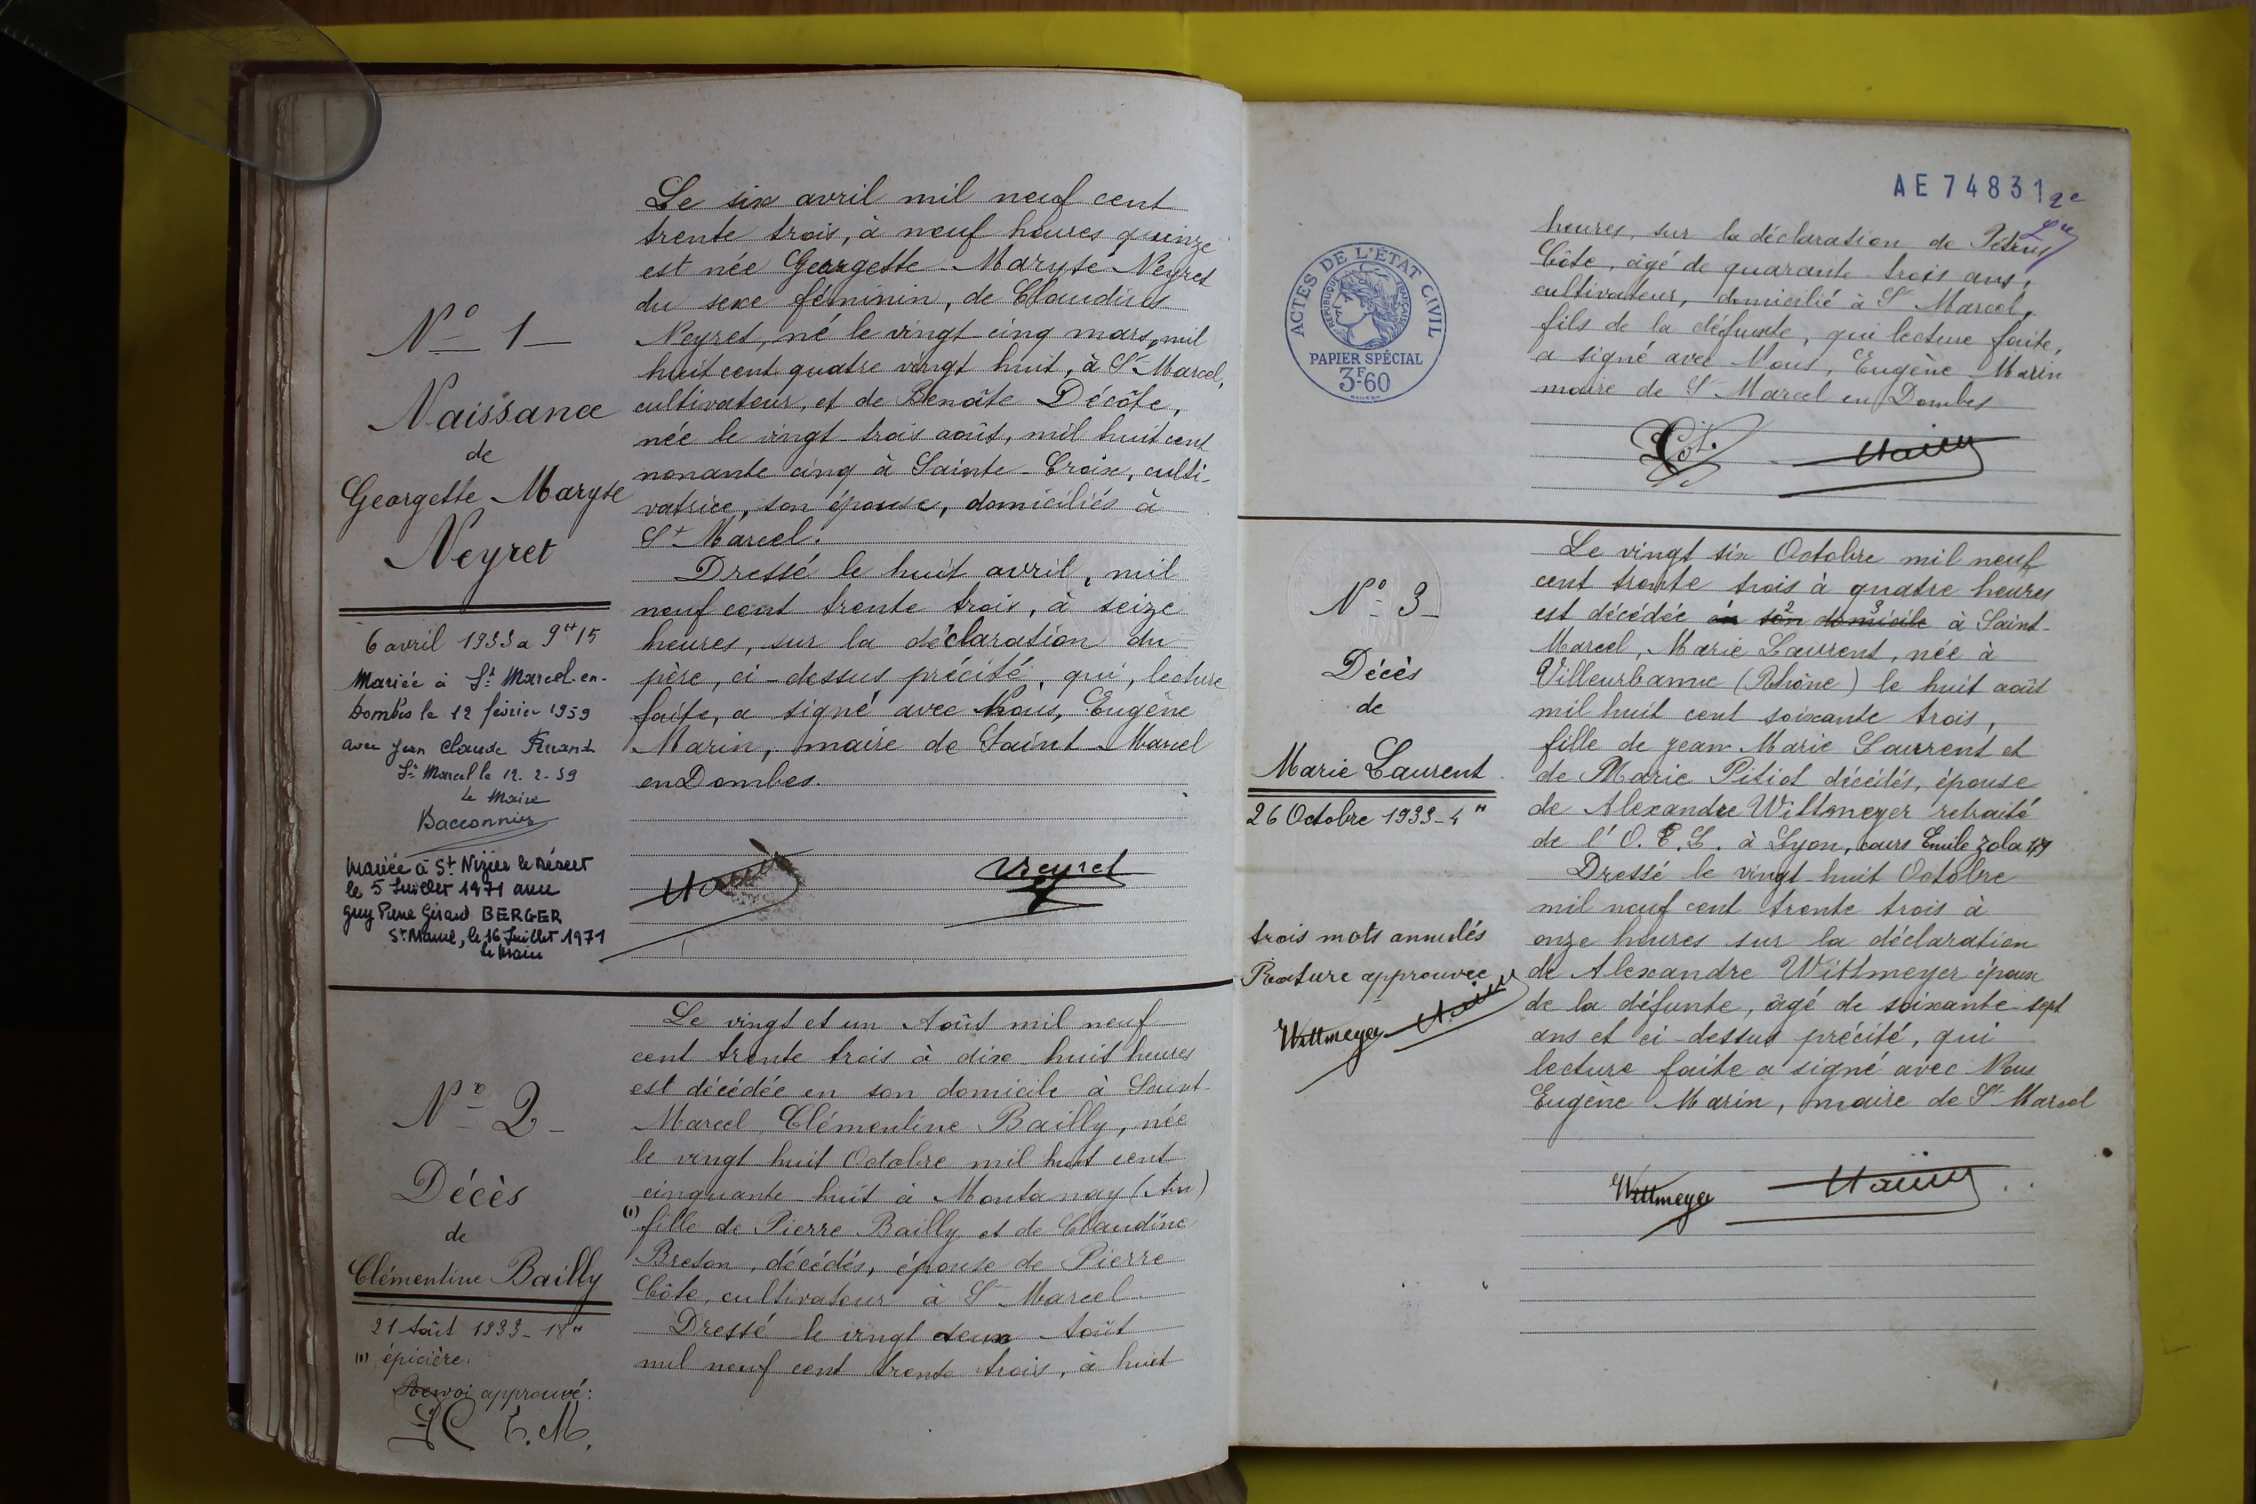 N° 1
Naissance
de
Georgette Maryse
Neyret
6 avril 1933 a 9H15
Mariée à St Marcel-en-
Dombes le 12 février 1959
avec Jean Claude
St Marcel le 12-2-59
Le Maire
Mariée à St Nizier le Désert
le 5 Juillet 1971 avec
Guy Pierre Gérard BERGER
St Marcel, le 16 Juillet 1971
Le Maire
Le six avril mil neuf cent
trente trois, à neuf heures quinze
est née Georgette Maryse Neyret
du sexe féminin, de Claudius
Neyret, né le vingt cinq mars, mil
huit cent quatre vingt huit, à St Marcel,
cultivateur, et de Benoîte Décôte,
née le vingt trois août, mil huit cent
nonante cinq à Sainte-Croix, culti-
vatrice, son épouse, domiciliés à
St Marcel.
Dressé le huit avril, mil
neuf cent trente trois, à seize
heures, sur la déclaration du
père, ci-dessus précité, qui, lecture
faite, a signé avec Nous, Eugène
Marin, maire de Saint-Marcel
en Dombes.
Marin Neyret
N° 2
Décès
de
Clémentine Bailly
21 Août 1933 - 18H
(1) épicière.
Renvoi approuvé:
E.M.
Le vingt et un Août mil neuf
cent trente trois à dix-huit heures
est décédée en son domicile à Saint-
Marcel, Clémentine Bailly, née
le vingt huit Octobre mil huit cent
cinquante-huit à Montanay (Ain)
(1) fille de Pierre Bailly et de Claudine
Breton, décédés, épouse de Pierre
Côte, cultivateur à St Marcel.
Dressé le vingt deux Août
mil neuf cent trente trois, à huit
AE 74831
2e
ACTES DE L'ÉTAT CIVIL
RÉPUBLIQUE FRANÇAISE
PAPIER SPÉCIAL
3F60
heures, sur la déclaration de Petrus
Côte, âgé de quarante-trois ans,
cultivateur, domicilié à St Marcel,
fils de la défunte, qui lecture faite,
a signé avec Nous, Eugène Marin
maire de St Marcel en Dombes
Marin
N° 3
Décès
de
Marie Laurent
26 Octobre 1933-4H
trois mots annulés
Rature approuvée
Wittmeyer Marin
Le vingt six Octobre mil neuf
cent trente trois à quatre heures
est décédée en son domicile à Saint-
Marcel, Marie Laurent, née à
Villeurbanne (Rhône) le huit août
mil huit cent soixante trois,
fille de Jean-Marie Laurent et
de Marie Pitiot décédés, épouse
de Alexandre Wittmeyer retraité
de l'O.E.L. à Lyon, cours Emile Zola
Dressé le vingt-huit Octobre
mil neuf cent trente trois à
onze heures sur la déclaration
de Alexandre Wittmeyer époux
de la défunte, âgé de soixante-sept
ans et ci-dessus précité, qui
lecture faite a signé avec Nous
Eugène Marin, maire de St Marcel
Wittmeyer Marin